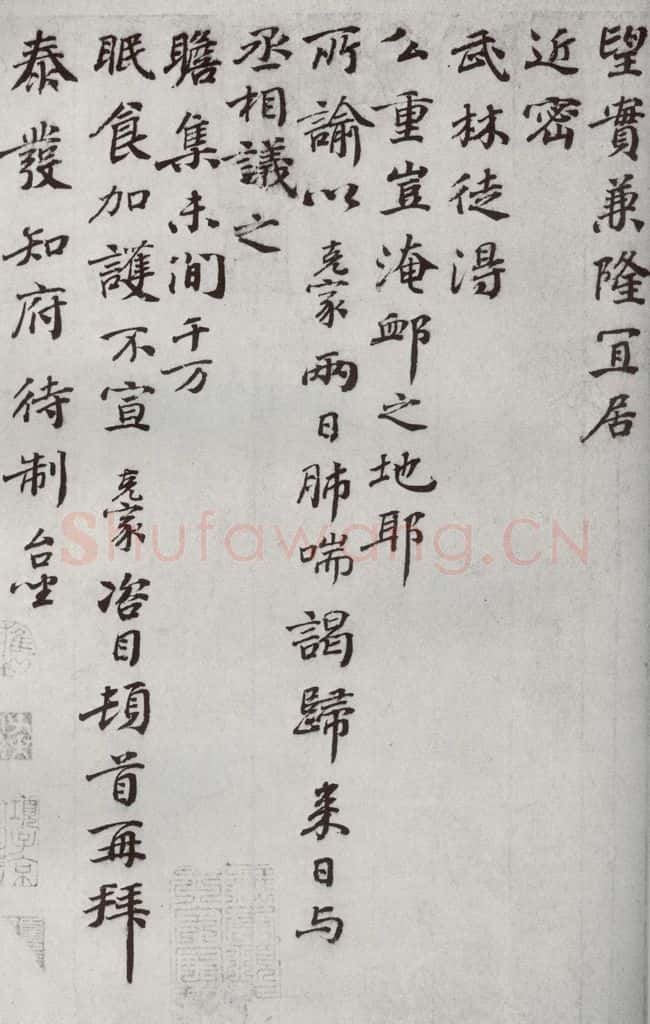 望實兼隆冝居
近密
武林徒得
公重豈淹䘏之地耶
所諭以克家兩日肺喘謁歸来日与
丞相議之
瞻集未間千万
眠食加護不宣克家咨目頓首再拜
泰發知府待制台坐
Shufawang.CN